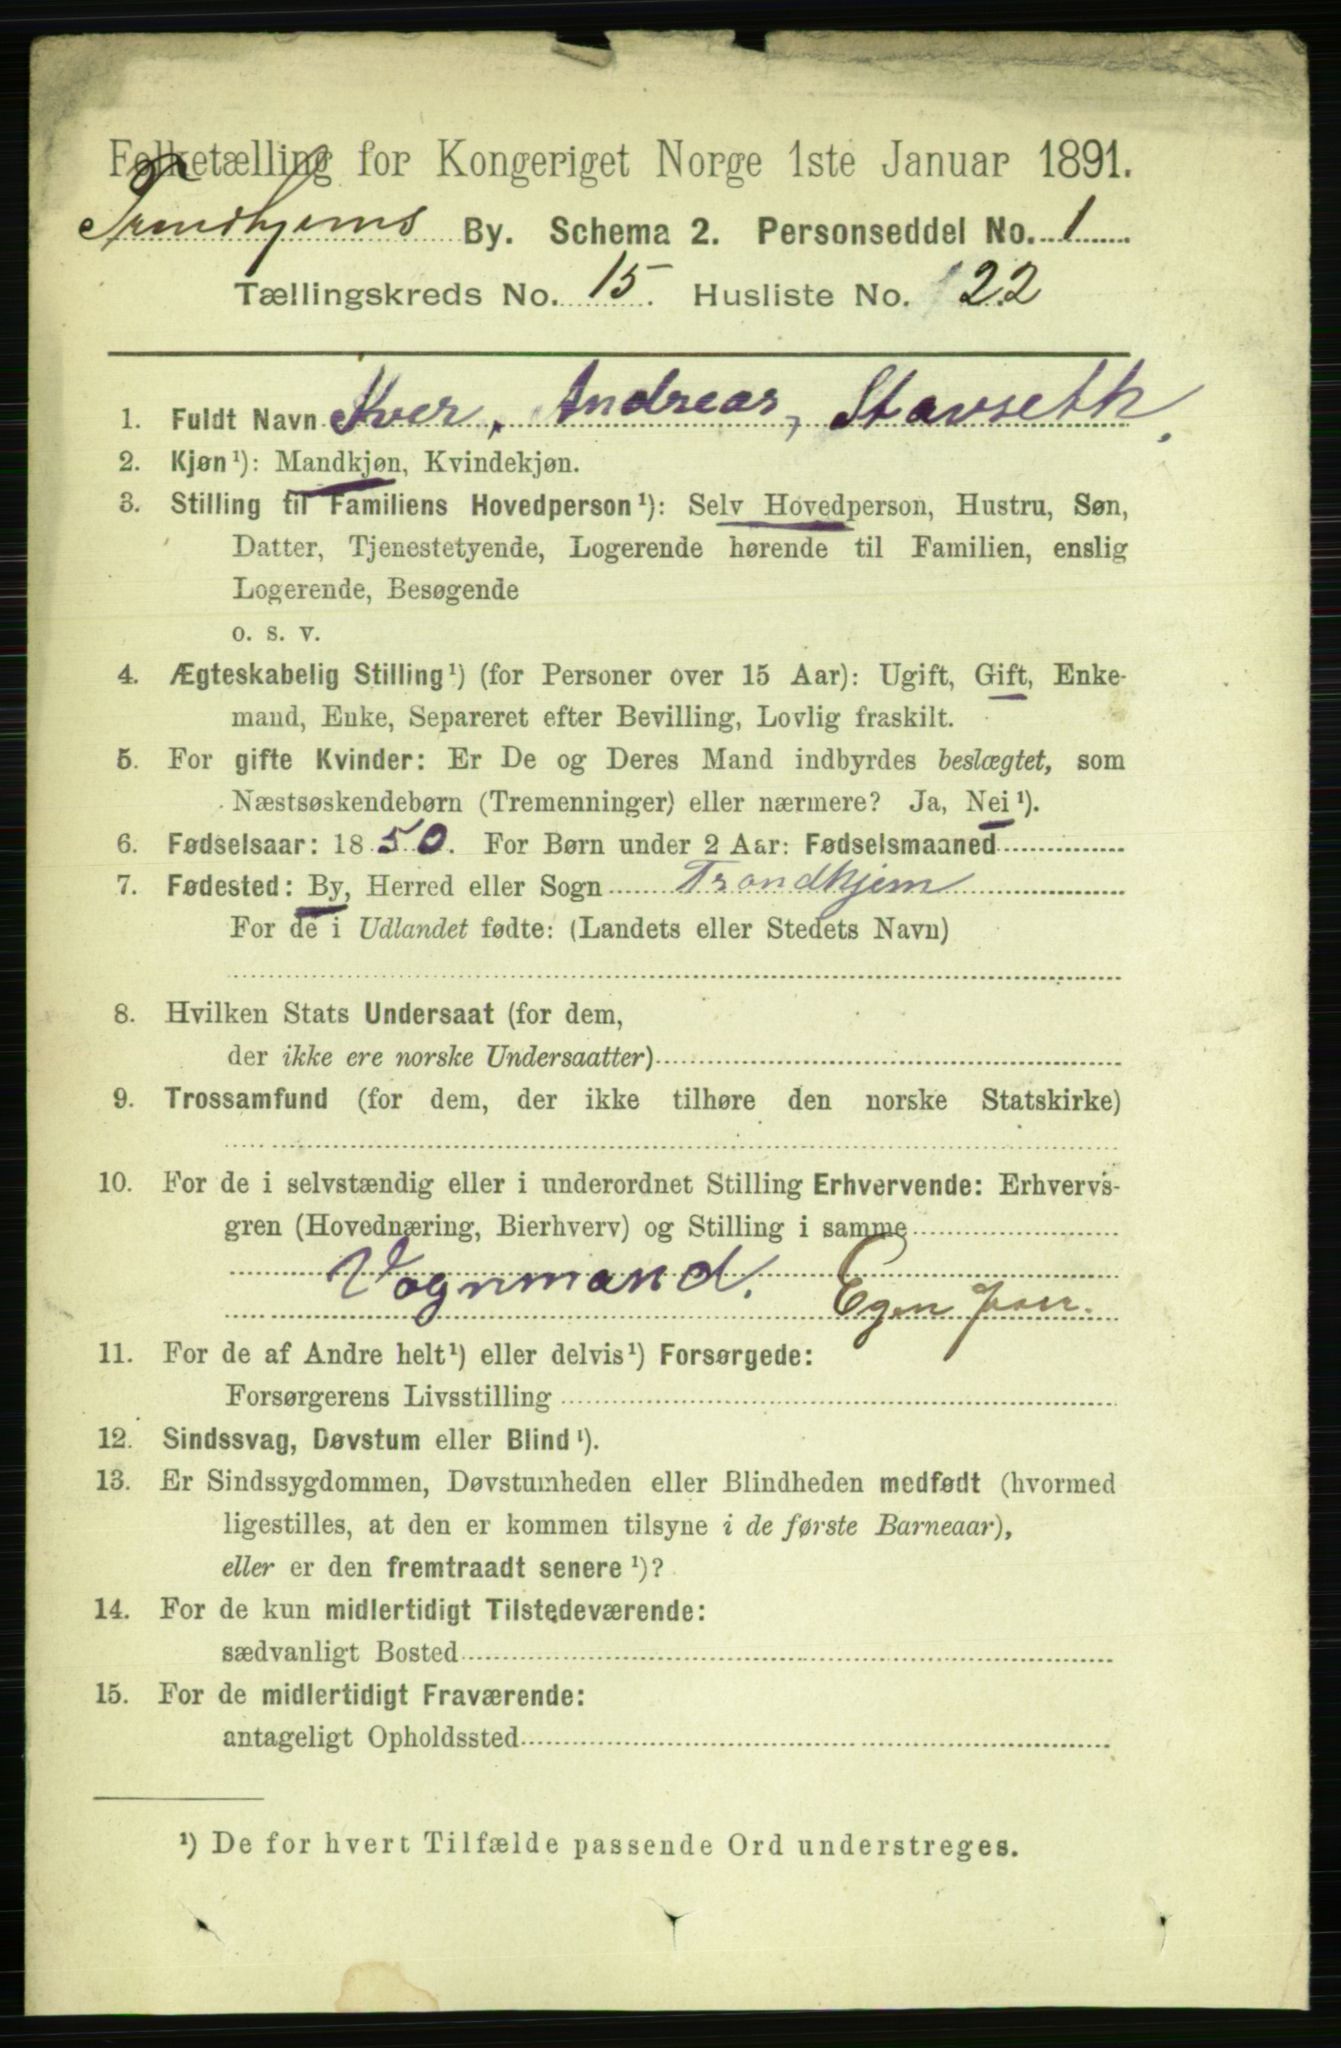 Folketælling for Kongeriget Norge 1ste Januar 1891.
Trondhjems By. Schema 2. Personseddel No. 1
Tællingskreds No. 15. Husliste No. 22
1. Fuldt Navn Iver, Andreas, Stavseth,
2. Kjøn¹): Mandkjøn, Kvindekjøn.
3. Stilling til Familiens Hovedperson¹): Selv Hovedperson, Hustru, Søn,
Datter, Tjenestetyende, Logerende hørende til Familien, enslig
Logerende, Besøgende
o. s. v.
4. Ægteskabelig Stilling¹) (for Personer over 15 Aar): Ugift, Gift, Enke-
mand, Enke, Separeret efter Bevilling, Lovlig fraskilt.
5. For gifte Kvinder: Er De og Deres Mand indbyrdes beslægtet, som
Næstsøskendebørn (Tremenninger) eller nærmere? Ja, Nei¹).
6. Fødselsaar: 1850. For Børn under 2 Aar: Fødselsmaaned
7. Fødested: By, Herred eller Sogn Trondhjem
For de i Udlandet fødte: (Landets eller Stedets Navn)
8. Hvilken Stats Undersaat (for dem,
der ikke ere norske Undersaatter)
9. Trossamfund (for dem, der ikke tilhøre den norske Statskirke)
10. For de i selvstændig eller i underordnet Stilling Erhvervende: Erhvervs-
gren (Hovednæring, Bierhverv) og Stilling i samme
Vognmand. Egen
11. For de af Andre helt¹) eller delvis¹) Forsørgede:
Forsørgerens Livsstilling
12. Sindssvag, Døvstum eller Blind¹).
13. Er Sindssygdommen, Døvstumheden eller Blindheden medfødt (hvormed
ligestilles, at den er kommen tilsyne i de første Barneaar),
eller er den fremtraadt senere¹)?
14. For de kun midlertidigt Tilstedeværende:
sædvanligt Bosted
15. For de midlertidigt Fraværende:
antageligt Opholdssted
¹) De for hvert Tilfælde passende Ord understreges.